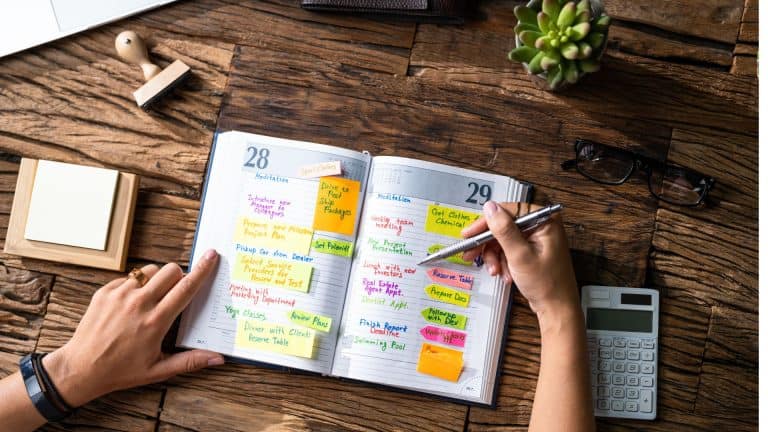 28
Meditation
Introduce new
Manager to
Colleagues
Drive to
Ship
Packages
Prepare New
Project Plan
Select Potential
Pickup Car from Dealer
Select Service
Providers for
Review and Test
Meeting with
Marketing Department
Yoga Classes
Review Plans
Dinner with Clients
Reserve Table
29
Meditation
Get Clothes
Chemical
Weekly team
Meeting
Key Point
Presentation
Lunch with new
investors
Reserve Table
Real Estate
Agent Appt.
Demo
Dentist Appt.
Followup with
Dev.
Finish Report
Deadline
Swimming Pool
Plan